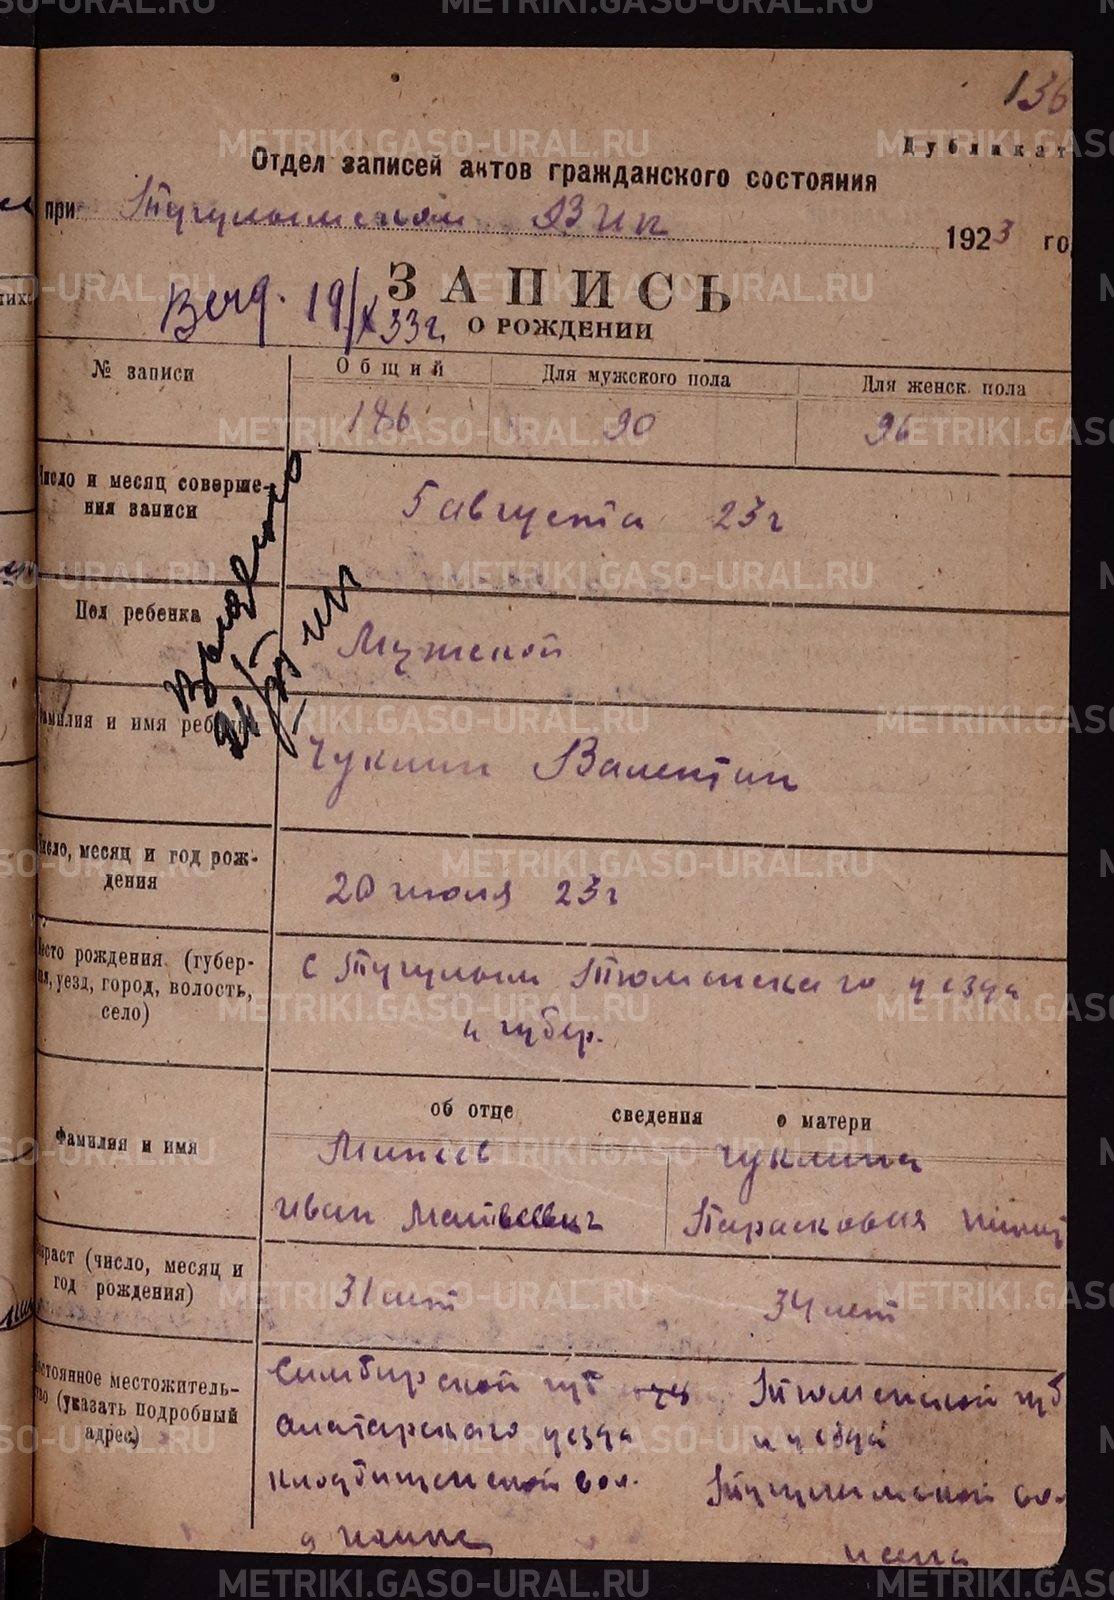 136
Дубликат
Отдел записей актов гражданского состояния
при Тугулымском ВИК 1923 го
ЗАПИСЬ
О РОЖДЕНИИ
19/X 33г.
№ записи
Общий
Для мужского пола
Для женск. пола
186
90
96
Число и месяц соверше-
ния записи
5 августа 23 г
Пол ребенка
Мужской
Фамилия и имя ребенка
Чуклин Валентин
Число, месяц и год рож-
дения
20 июля 23 г
Место рождения (губер-
ния, уезд, город, волость,
село)
с Тугулым Тюменскаго уезда
и губер.
об отце сведения о матери
Фамилия и имя
Минеев
Чуклина
Иван Матвеевич
Парасковия
Возраст (число, месяц и
год рождения)
31 лет
34 лет
Постоянное местожитель-
ство (указать подробный
адрес)
Симбирской губ
Алатарскаго уезда
вол.
Тюменской губ
и уезда
Тугулымской вол.
и села
METRIKI.GASO-URAL.RU